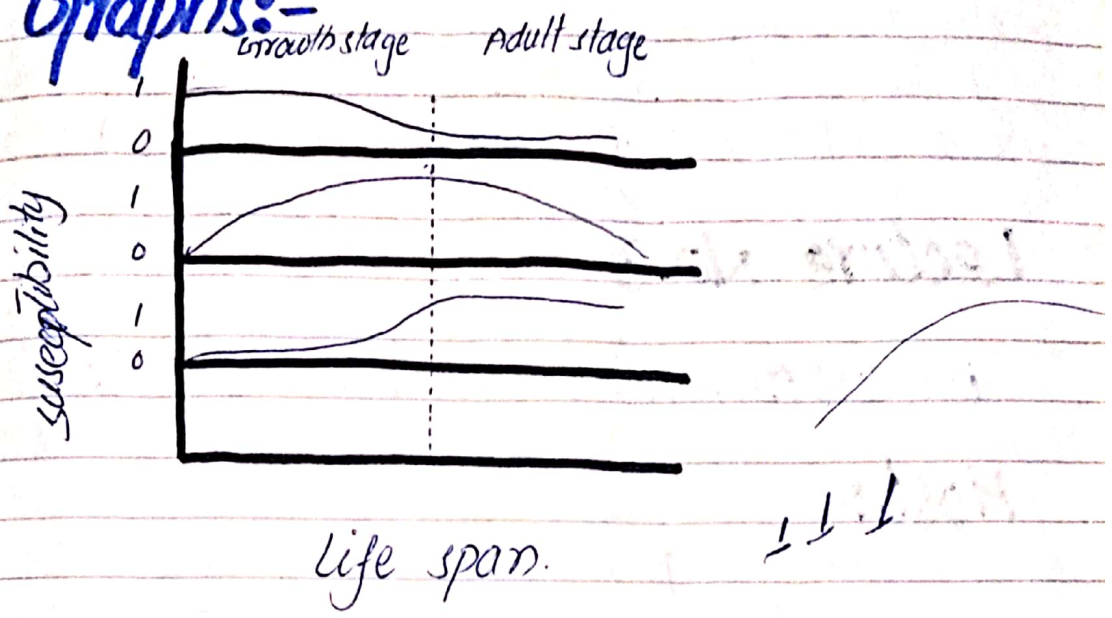 Graphs:-
Growth stage Adult stage
1
0
1
0
1
0
suseptibility
Life span.